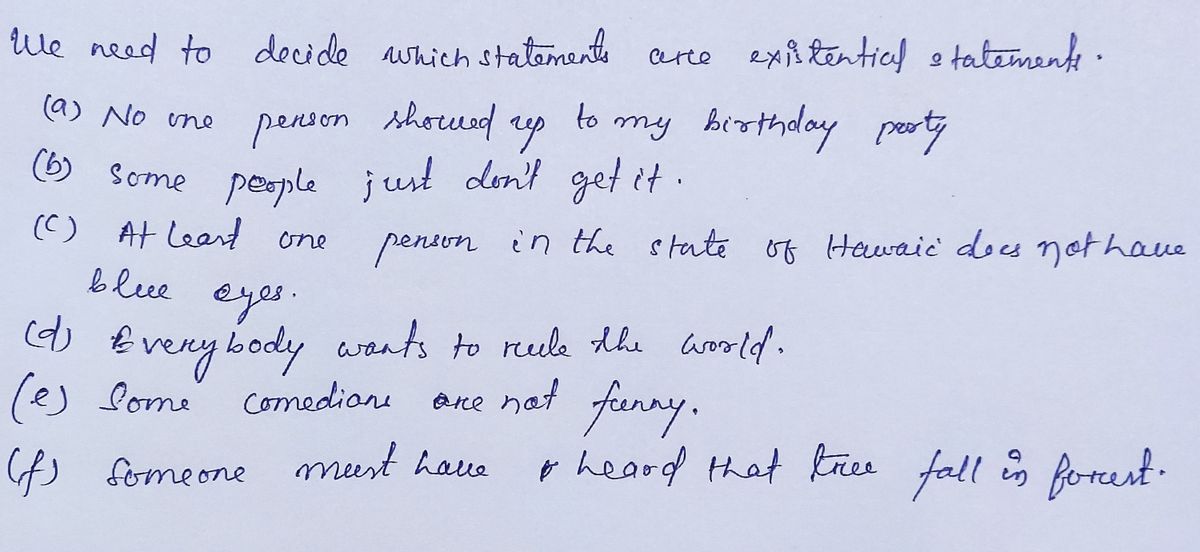 We need to decide which statements are existential statements.
(a) No one person showed up to my birthday party
(b) some people just don't get it.
(c) At least one person in the state of Hawaii does not have
blue eyes.
(d) Everybody wants to rule the world.
(e) Some comedians are not funny.
(f) Someone must have heard that tree fall in forest.